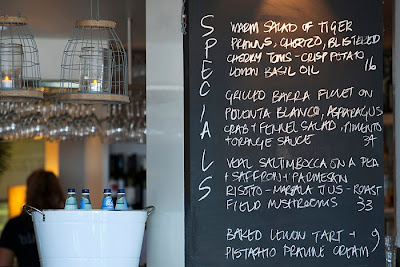 SPECIALS
WARM SALAD OF TIGER
PRAWNS, CHORIZO, BLISTERED
CHERRY TOMS - CRISP POTATO
LEMON BASIL OIL 16
GRILLED BARRA FILLET ON
POLONTA BLANCO, ASPARAGUS
CRAB + FENNEL SALAD, PIMENTO
+ ORANGE SAUCE 34
VEAL SALTIMBOCCA ON A PEA
+ SAFFRON + PARMESAN
RISOTTO - MARSALA JUS - ROAST
FIELD MUSHROOMS 33
BAKED LEMON TART + 9
PISTACHIO PRALINE CREAM